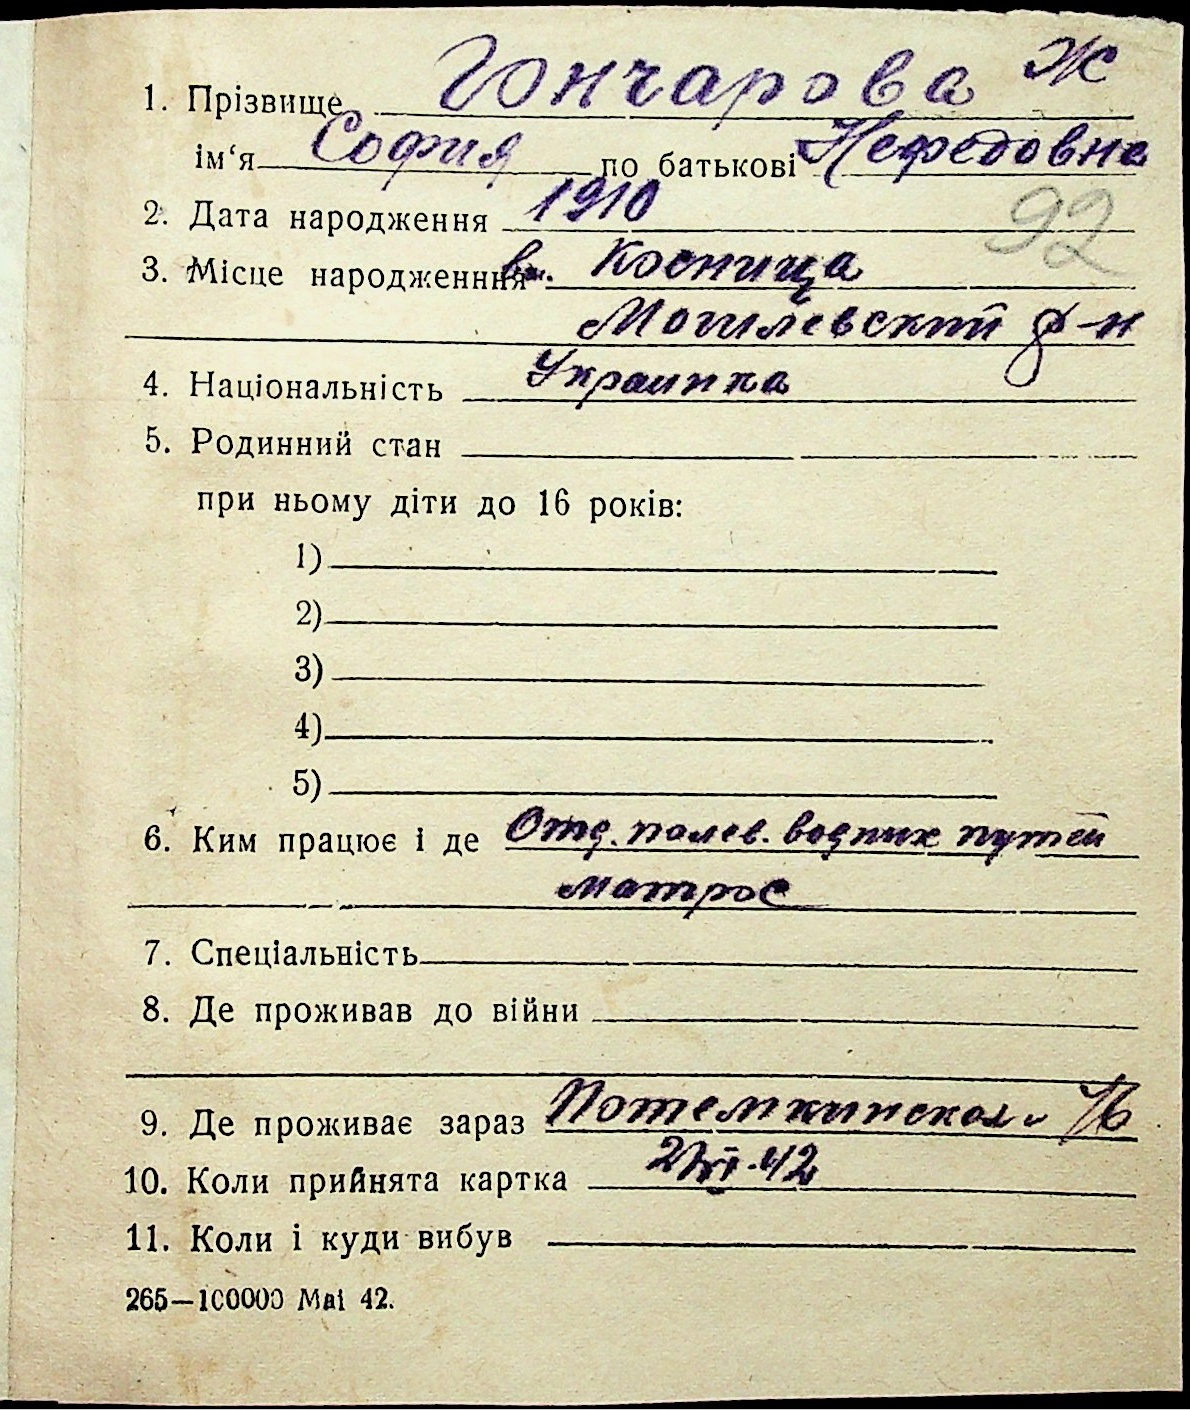 1. Прізвище Гончарова Ж
ім‘я София по батькові Нефедовна
2. Дата народження 1910
92
3. Місце народженння в. Косница
Могилевский р-н
4. Національність Украинка
5. Родинний стан
при ньому діти до 16 років:
1)
2)
3)
4)
5)
6. Ким працює і де Отд. полев. водних путей
матрос
7. Спеціальність
8. Де проживав до війни
9. Де проживає зараз Потемкинская
10. Коли прийнята картка 42
11. Коли і куди вибув
265—100000 Маі 42.